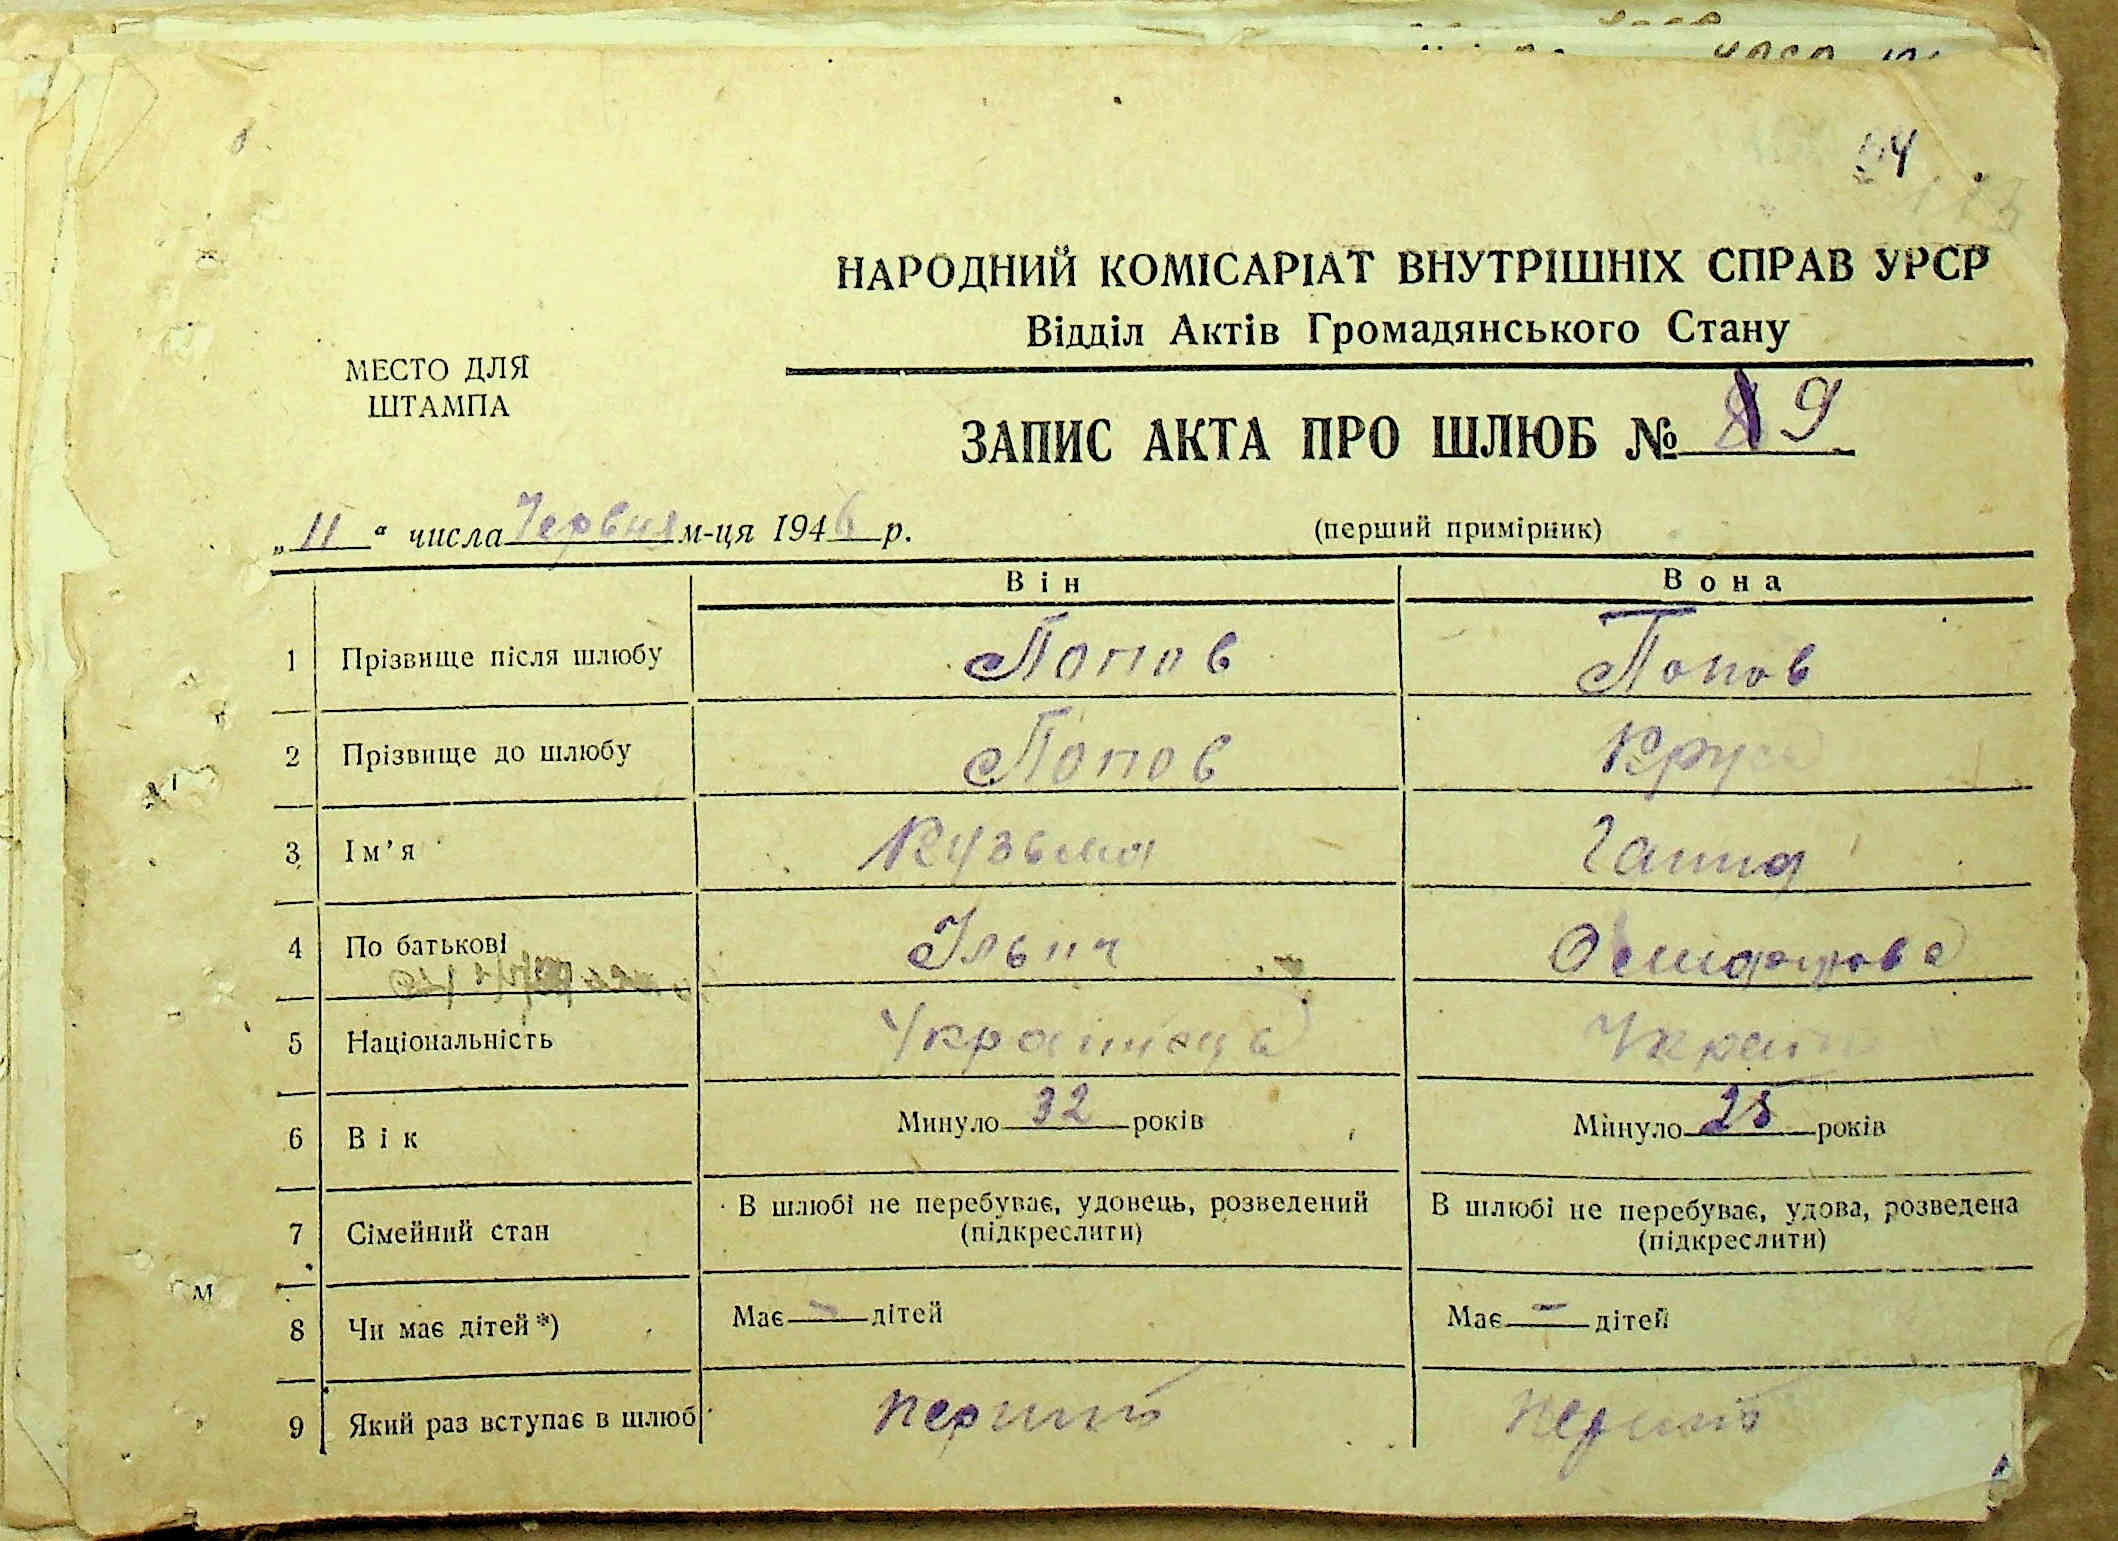 НАРОДНИЙ КОМІСАРІАТ ВНУТРІШНІХ СПРАВ УРСР
Відділ Актів Громадянського Стану
МЕСТО ДЛЯ
ШТАМПА
ЗАПИС АКТА ПРО ШЛЮБ № 19
„11“ числа Червня м-ця 1946 р.
(перший примірник)
Він Вона
1 Прізвище після шлюбу Попов Попов
2 Прізвище до шлюбу Попов
3 Ім’я Кузьма Ганна
4 По батькові Ільич
5 Національність Українець
6 Вік Минуло 32 років Минуло 25 років
7 Сімейний стан В шлюбі не перебуває, удовець, розведений (підкреслити) В шлюбі не перебуває, удова, розведена (підкреслити)
8 Чи має дітей*) Має – дітей Має – дітей
9 Який раз вступає в шлюб перший перший